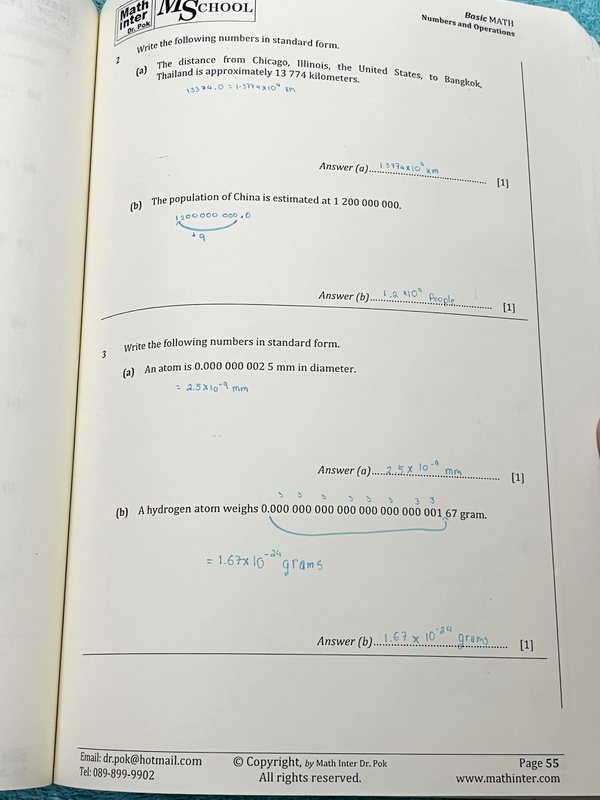 Math
Inter
Dr. Pok
MSCHOOL
Basic MATH
Numbers and Operations
2 Write the following numbers in standard form.
(a) The distance from Chicago, Illinois, the United States, to Bangkok,
Thailand is approximately 13 774 kilometers.
13774.0 = 1.3774×10⁴ km
Answer (a) 1.3774×10⁴ km [1]
(b) The population of China is estimated at 1 200 000 000.
1200000 000.0
+9
Answer (b) 1.2 ×10⁹ People [1]
3 Write the following numbers in standard form.
(a) An atom is 0.000 000 002 5 mm in diameter.
= 2.5×10⁻⁹ mm
Answer (a) 2.5 × 10⁻⁹ mm [1]
3 3 3 3 3 3 3 3
(b) A hydrogen atom weighs 0.000 000 000 000 000 000 000 001 67 gram.
= 1.67×10⁻²⁴ grams
Answer (b) 1.67 × 10⁻²⁴ grams [1]
Email: dr.pok@hotmail.com
Tel: 089-899-9902
© Copyright, by Math Inter Dr. Pok
All rights reserved.
Page 55
www.mathinter.com